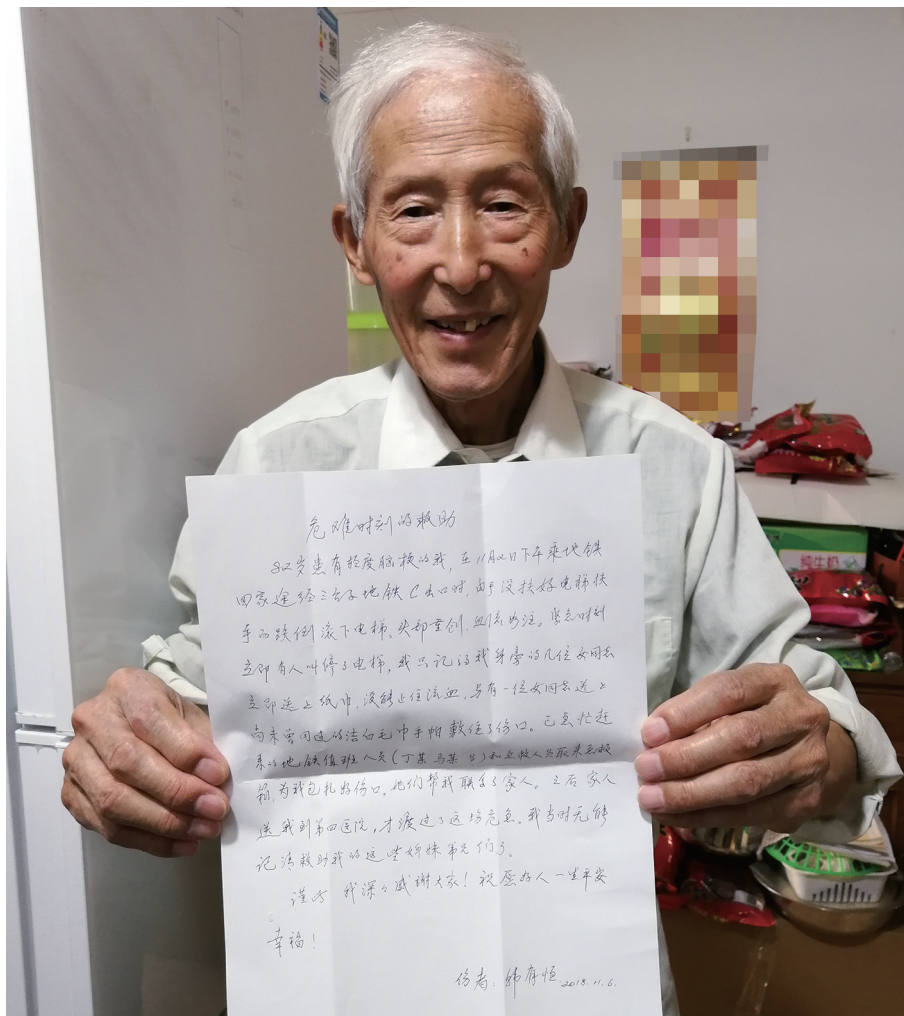 危难时刻的救助
82岁患有轻度脑梗的我，在11月2日下午乘地铁
回家途经三台子地铁C出口时，由于没扶好电梯扶
手而跌倒滚下电梯，头部重创，血流如注。紧急时刻
立即有人叫停了电梯，我只记得我身旁的几位女同志
立即送上纸巾，没能止住流血，另有一位女同志送上
尚未曾用过的洁白毛巾手帕敷住了伤口。已急忙赶
来的地铁值班人员（丁某 马某 ）和立救人员取来急救
箱，为我包扎好伤口。他们帮我联系了家人。之后家人
送我到第四医院，才渡过了这场危急。我当时无能
记清救助我的这些姊妹弟兄们了。
谨此 我深深感谢大家！祝愿好人一生平安
幸福！
伤者：韩有恒 2018.11.6.
纯牛奶